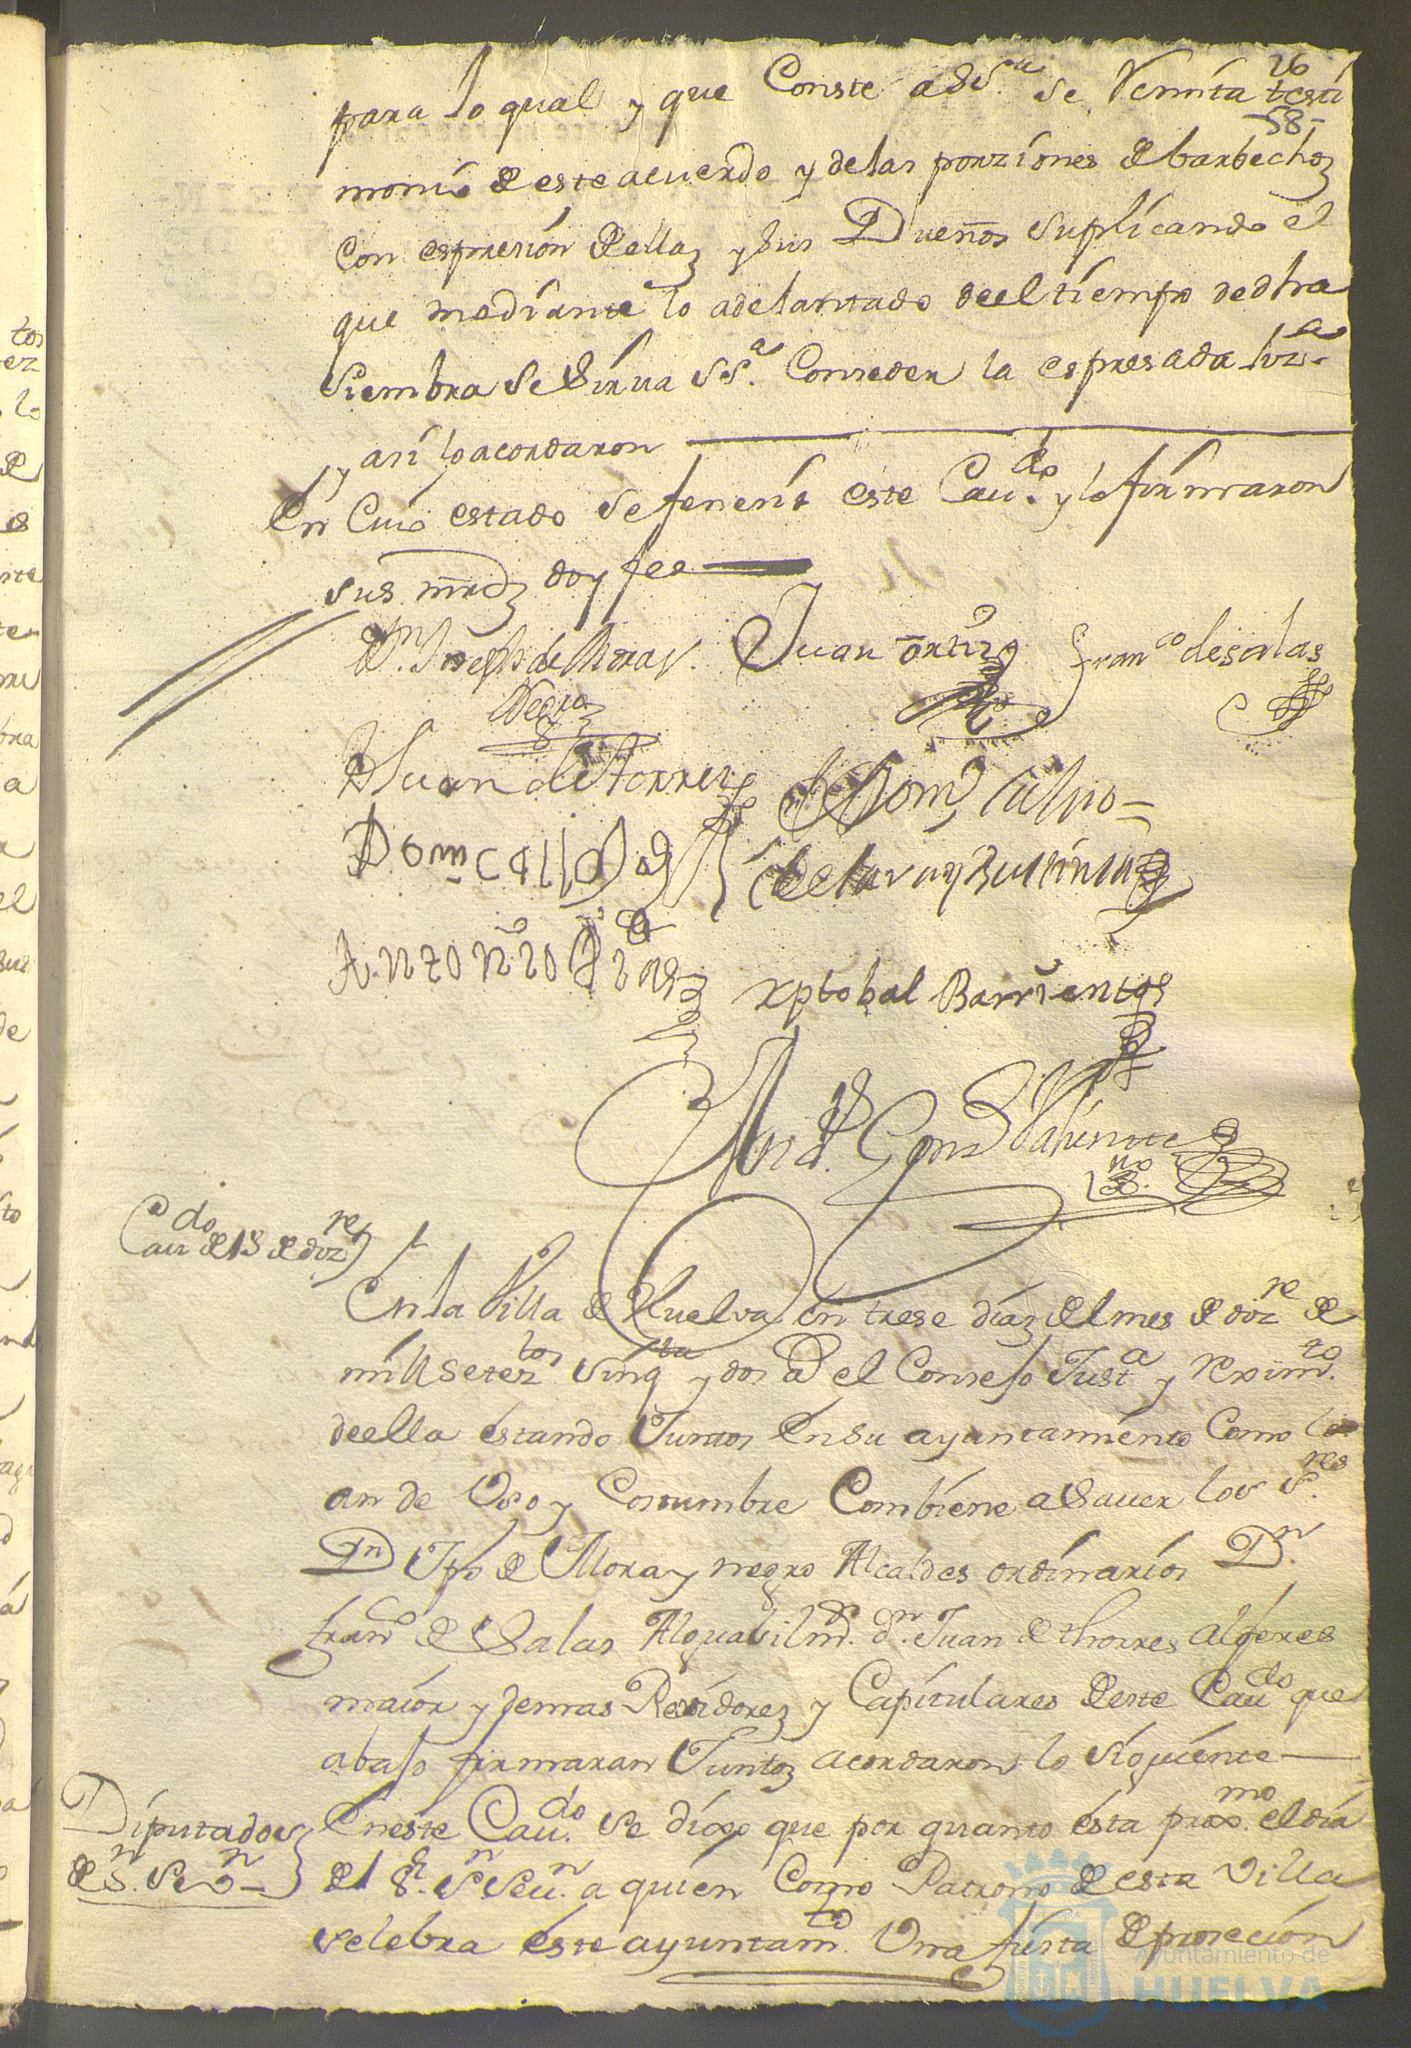 26
para lo qual y que Conste a Sѕ.ª se Remita testi
58-
monio de este acuerdo y de las porziones de barbechos
con espresion de ellas y sus Dueños suplicando el
que mediante lo adelantado de el tiempo de dha
siembra se sirva Sѕ.ª Conseder la espresada liz.ª
y asi lo acordaron
En Cuio estado se feneció este Cau.do y lo firmaron
sus mrds doy fee
Dn. Joseph de Mora y.
Negro
Juan Ortiz
Fran.co de salas
D Juan de Torres
Dom
de la
Antonio Dias
xptobal Barrientos
And.s Gonz Valiente
s.no
Cau.do de 13 de diz.re
En la Villa de Huelva en trese dias del mes de diz.re de
mill setez.tos sinq.ta y dos a.s el Consejo Just.a y reximi.to
de ella estando Juntos En su ayuntamiento Como lo
an de Vso y Costumbre Combiene a Saver los S.res
Dn Jph de Mora y negro Alcaldes ordinarios Dn.
fran.co de Salas Alguasil m.r d.n Juan de thorres Alferes
maior y demas Rexidores y Capitulares de este Cau.do que
abajo firmaran Juntos acordaron lo siguiente
Diputados
de S.n Se.n
En este Cau.do se dixo que por quanto esta prox.mo el dia
del S.r S.n Seu.n a quien Como Patrono de esta Villa
selebra este ayuntam.to Una fiesta de prosecion
Ayuntamiento de
HUELVA